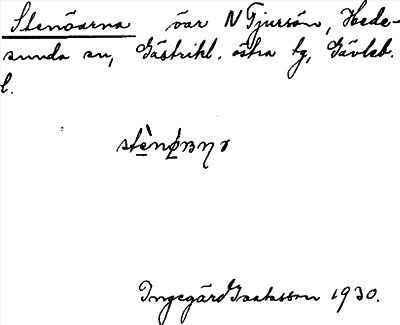 Stenöarna öar N Tjursön, Hede-
sunda sn, Gästrikl. östra tg, Gävleb.
l.
Ingegärd Isaksson 1930.